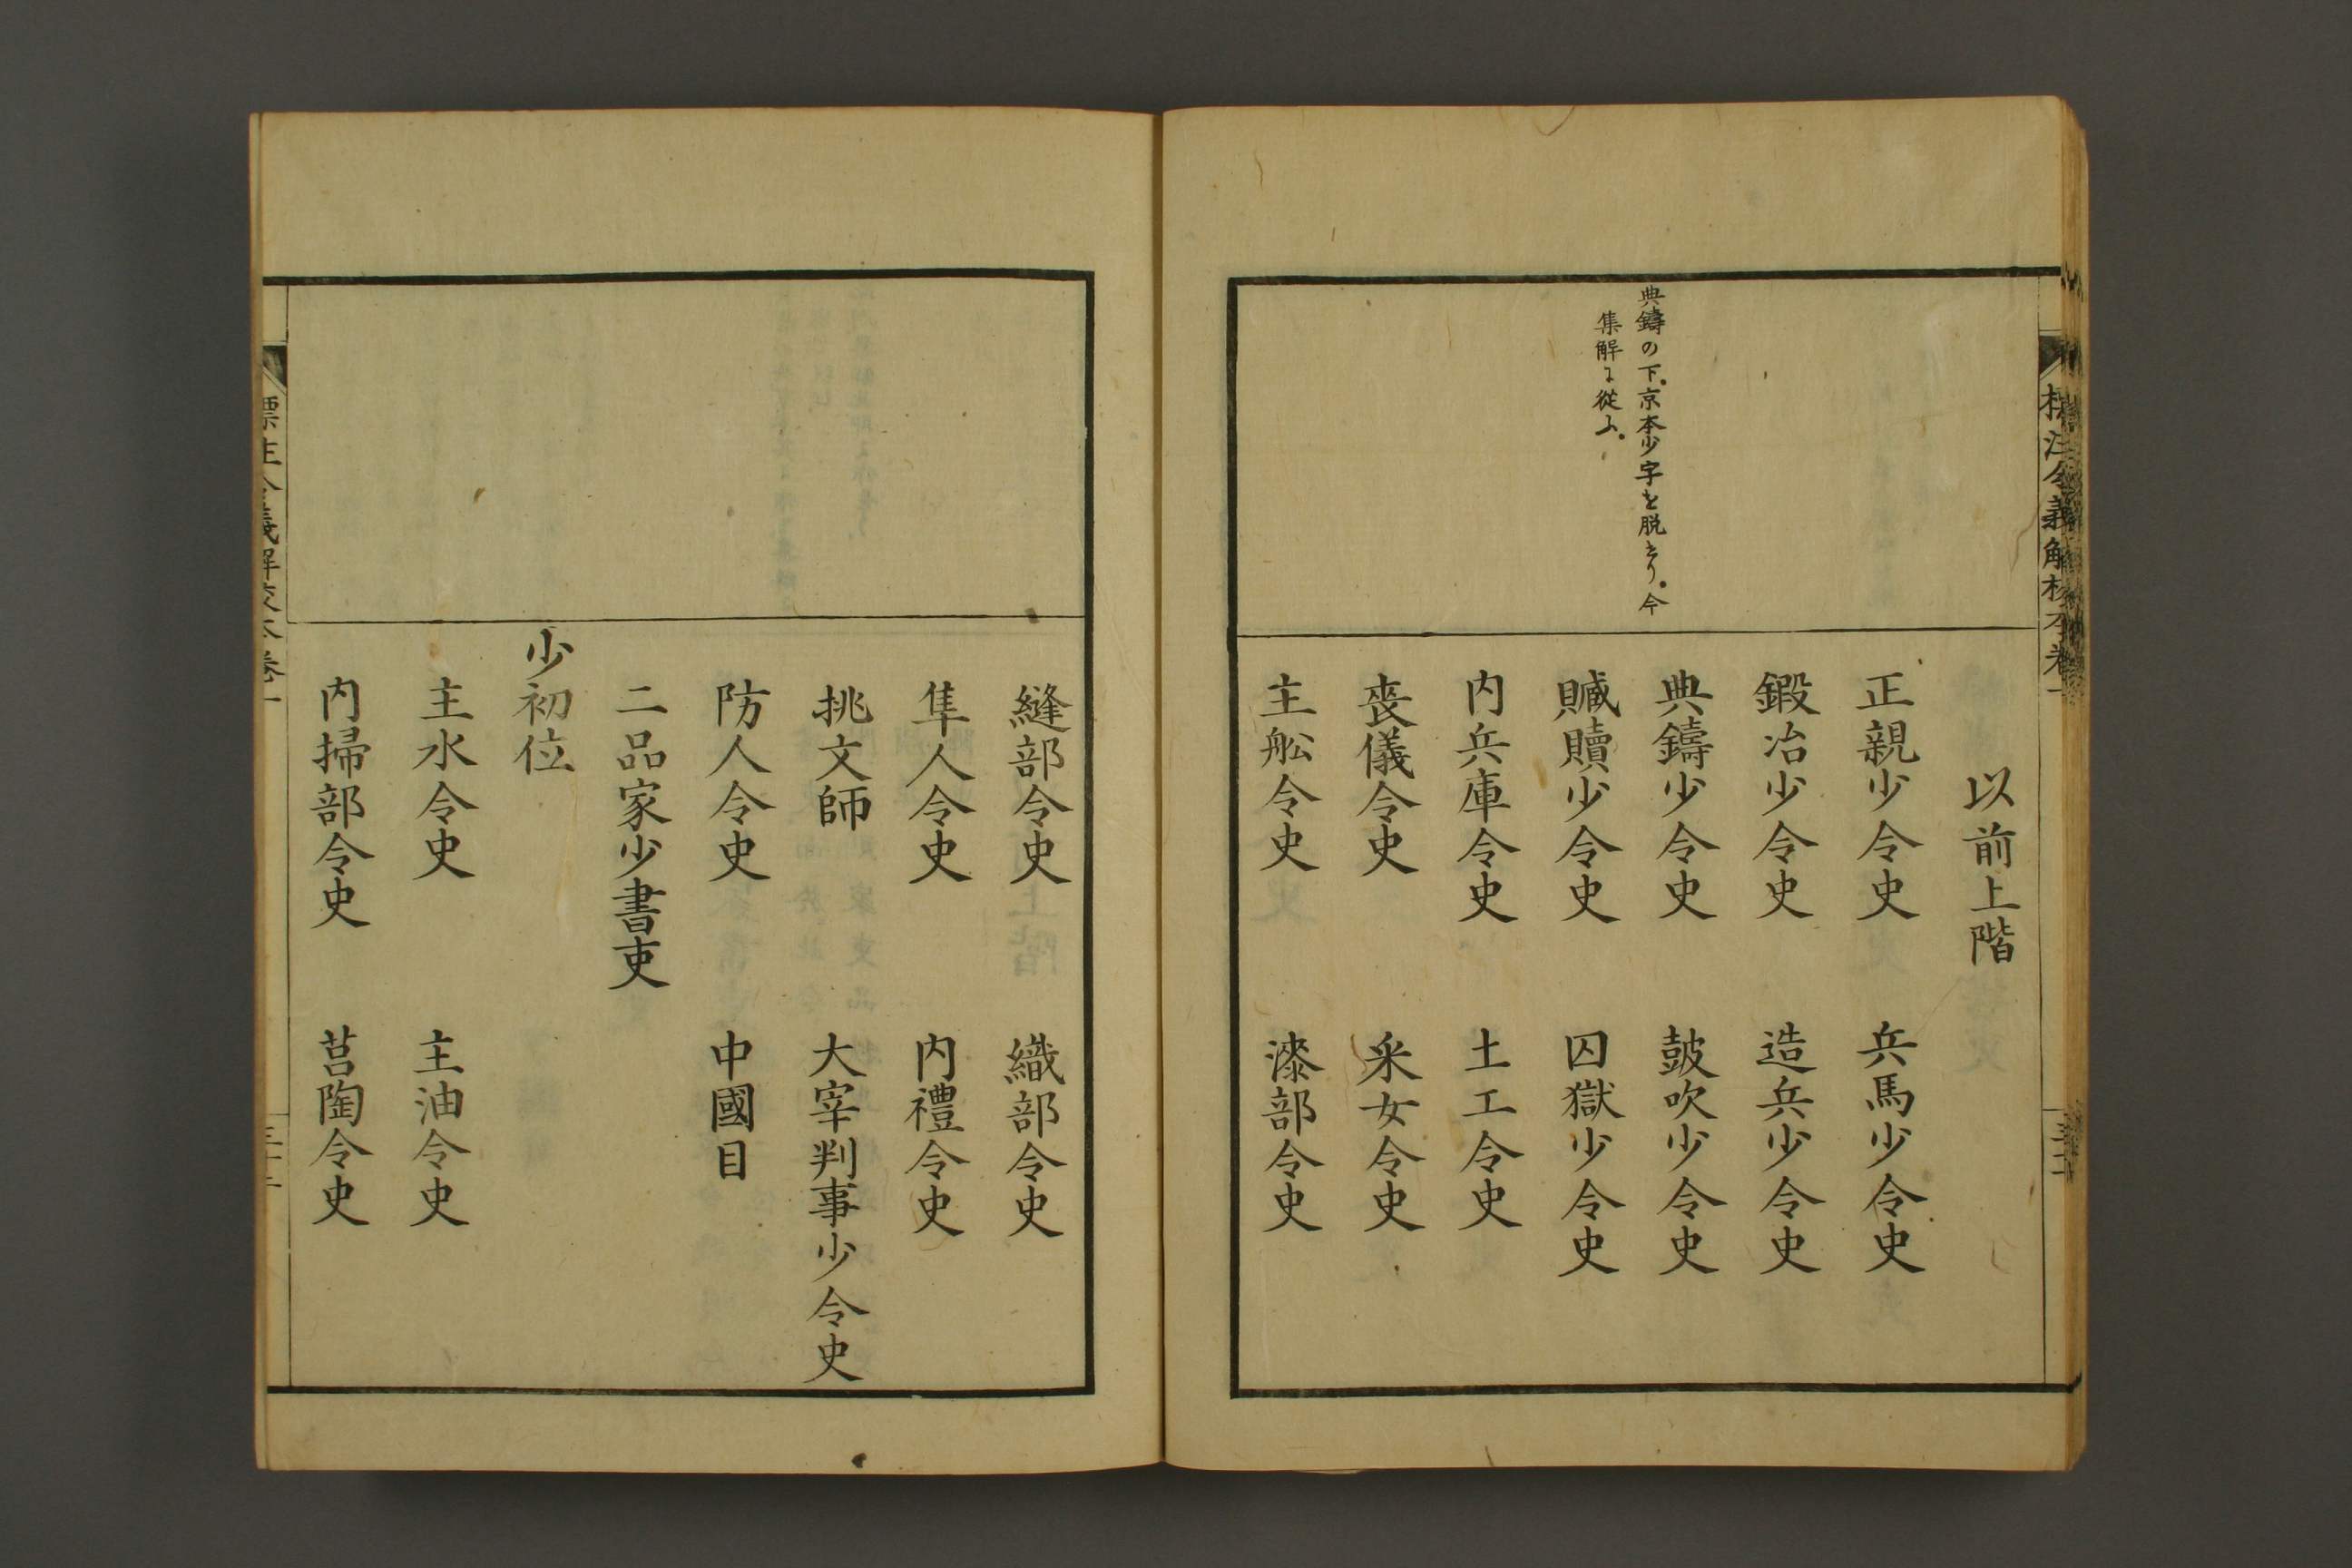 標注令義解校本卷一
典鑄の下。京本少字を脱せり。今
集解に從ふ。
以前上階
正親少令史　兵馬少令史
鍛冶少令史　造兵少令史
典鑄少令史　鼓吹少令史
贓贖少令史　囚獄少令史
内兵庫令史　土工令史
喪儀令史　采女令史
主舩令史　漆部令史
縫部令史　織部令史
隼人令史　内禮令史
挑文師　大宰判事少令史
防人令史　中國目
二品家少書吏
少初位
主水令史　主油令史
内掃部令史　筥陶令史
標注令義解校本卷一